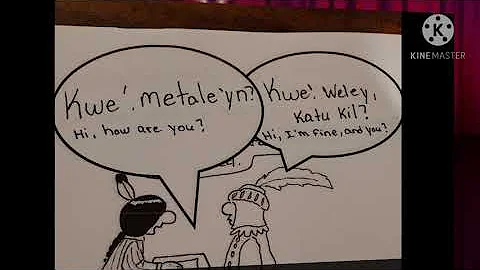 Kwe'. Metale'yn?
Hi, how are you?
Kwe'. Weley,
Katu Kil?
Hi, I'm fine, and you?
KINEMASTER